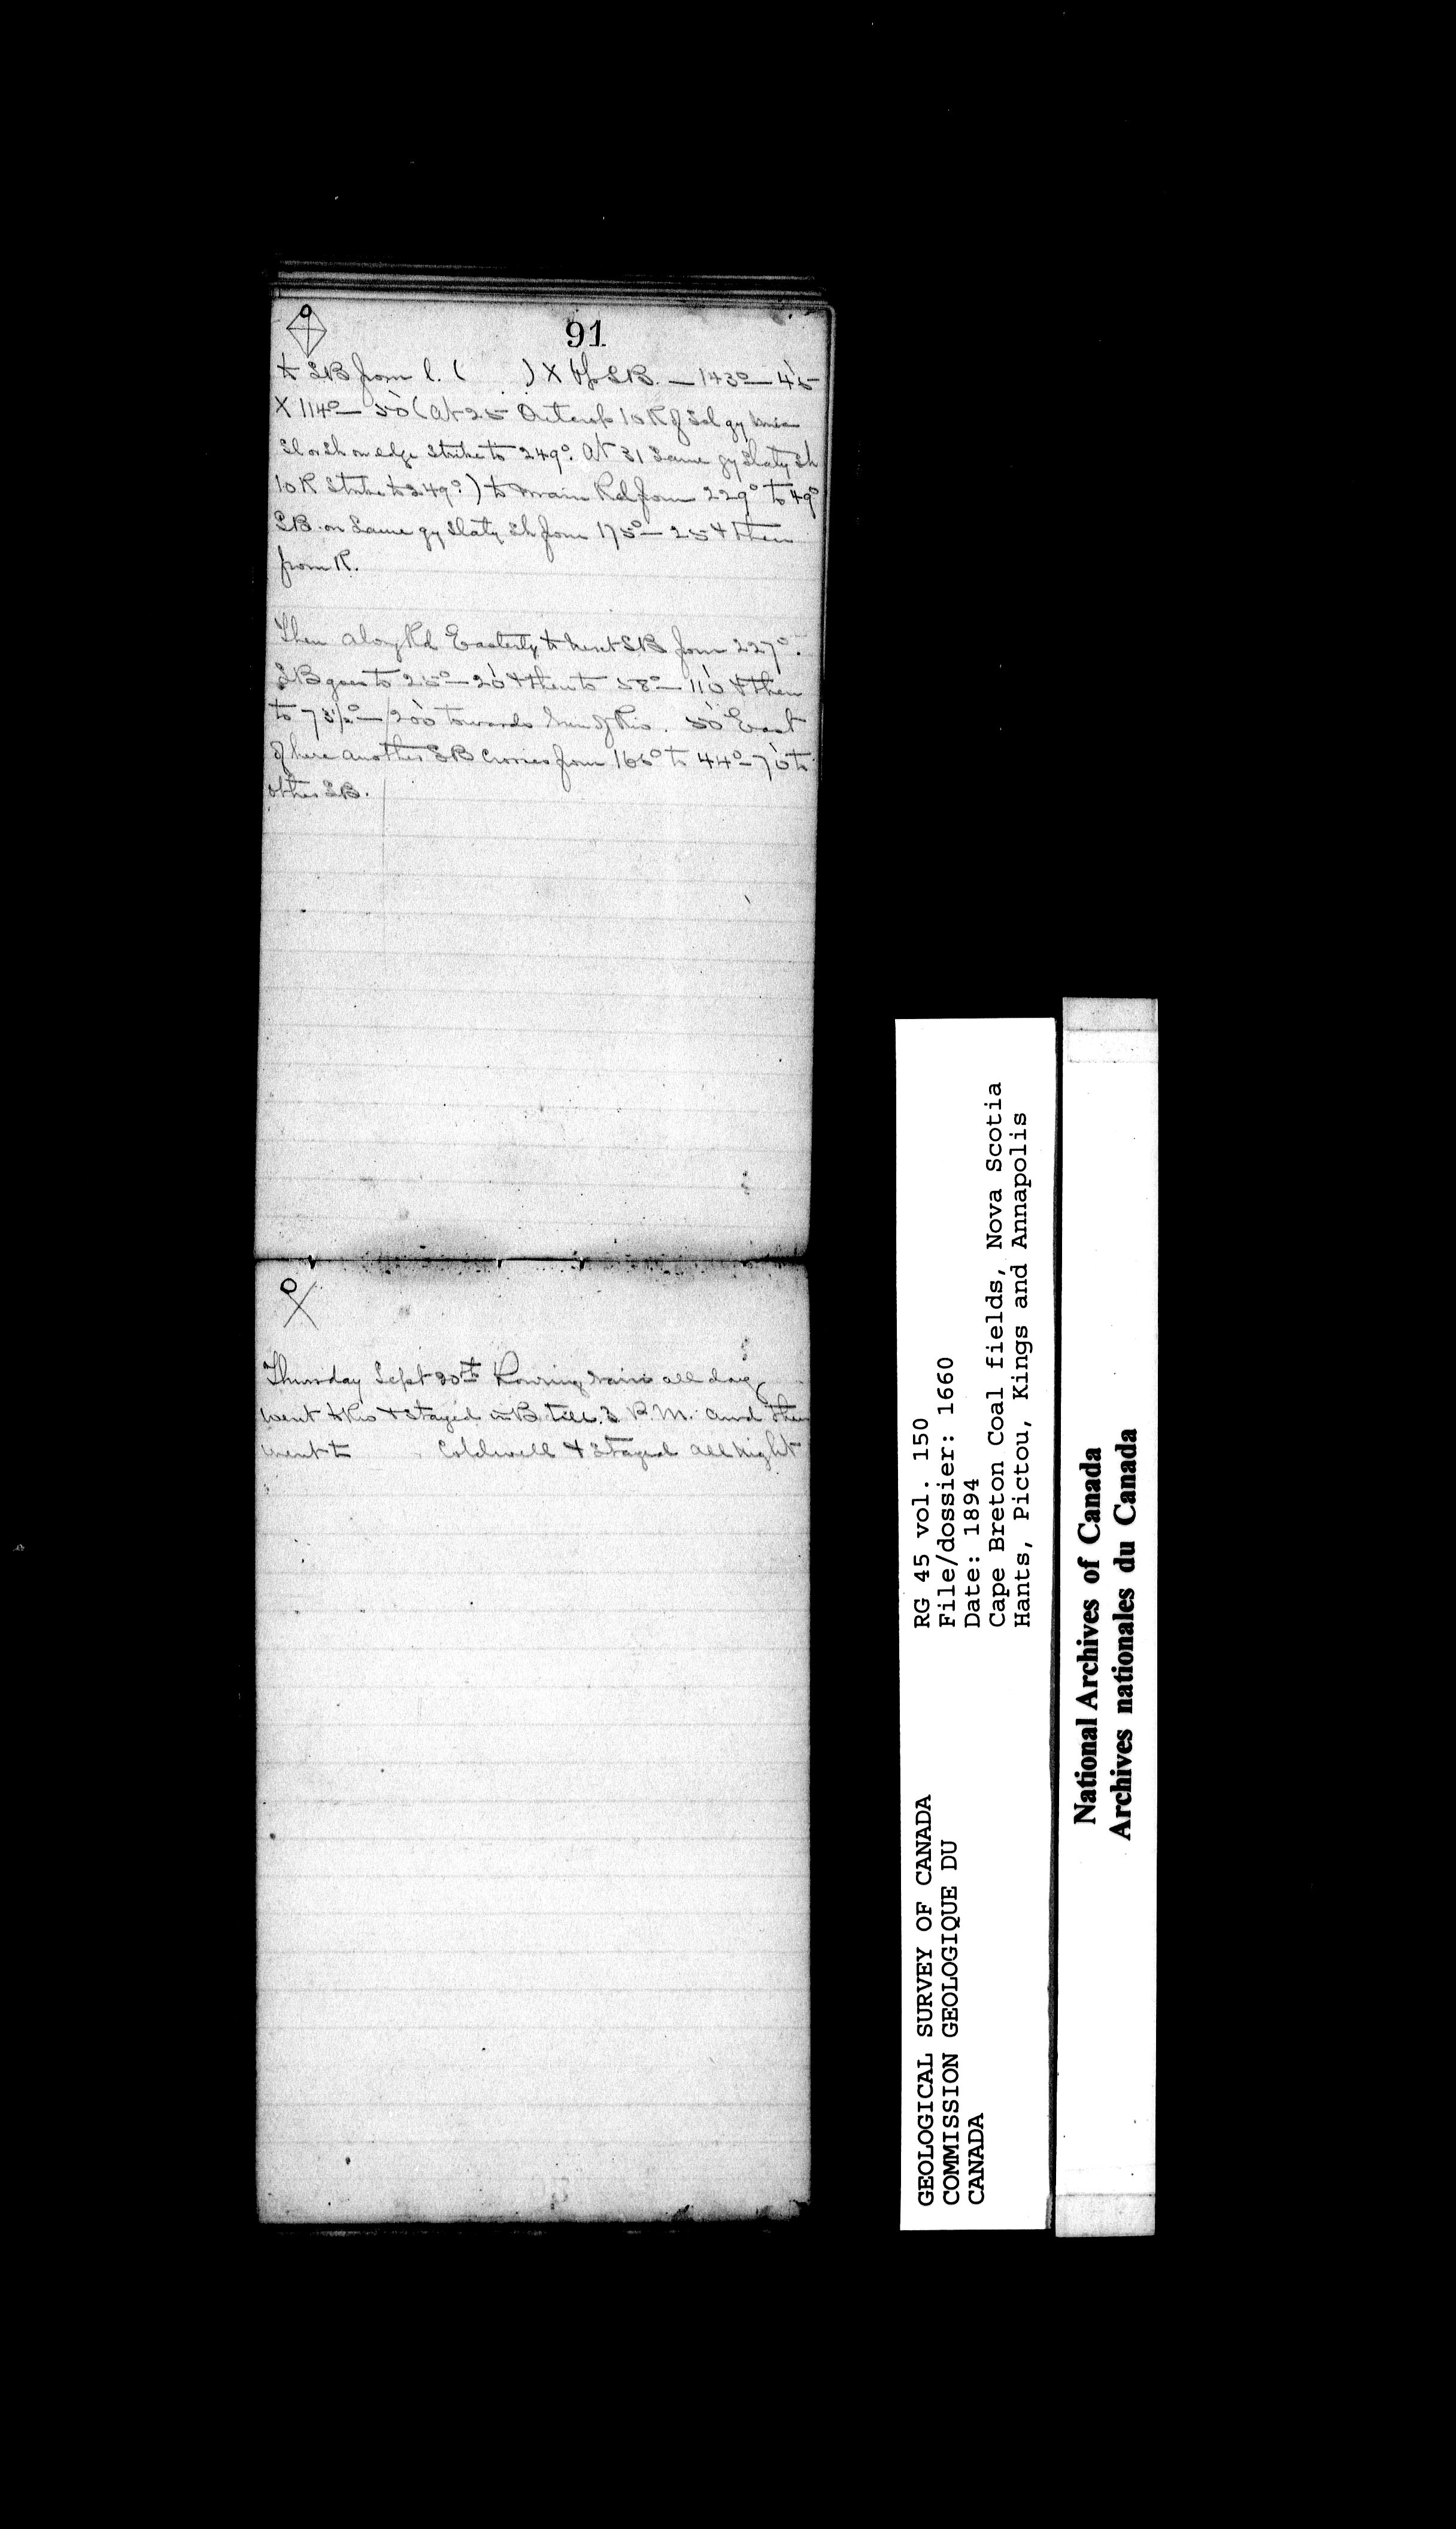 91
to SB from l. ( ) X up SB. — 143° — 45
X 114° — 50 (At 25 Outcrop 10 R of gy
Sl or Sh on edge Strike to 249°. At 31 Same gy Slaty Sh
10 R Strike to 249°) to main Rd from 229° to 49°
SB on Same gy Slaty Sh from 175° — 25 & then
from R.
Then along Rd Easterly to next SB from 227°.
SB goes to 25° — 20 & then to 58° — 110 & then
to 73½° — 200 towards of this. 50 East
of here another SB Crosses from 165° to 44° — 70 to
other SB.
Thursday Sept 20th rain all day
went to & Stayed in B till 3 P.M. and then
went to Coldwell & Stayed all night
GEOLOGICAL SURVEY OF CANADA
COMMISSION GEOLOGIQUE DU
CANADA
RG 45 vol. 150
File/dossier: 1660
Date: 1894
Cape Breton Coal fields, Nova Scotia
Hants, Pictou, Kings and Annapolis
National Archives of Canada
Archives nationales du Canada